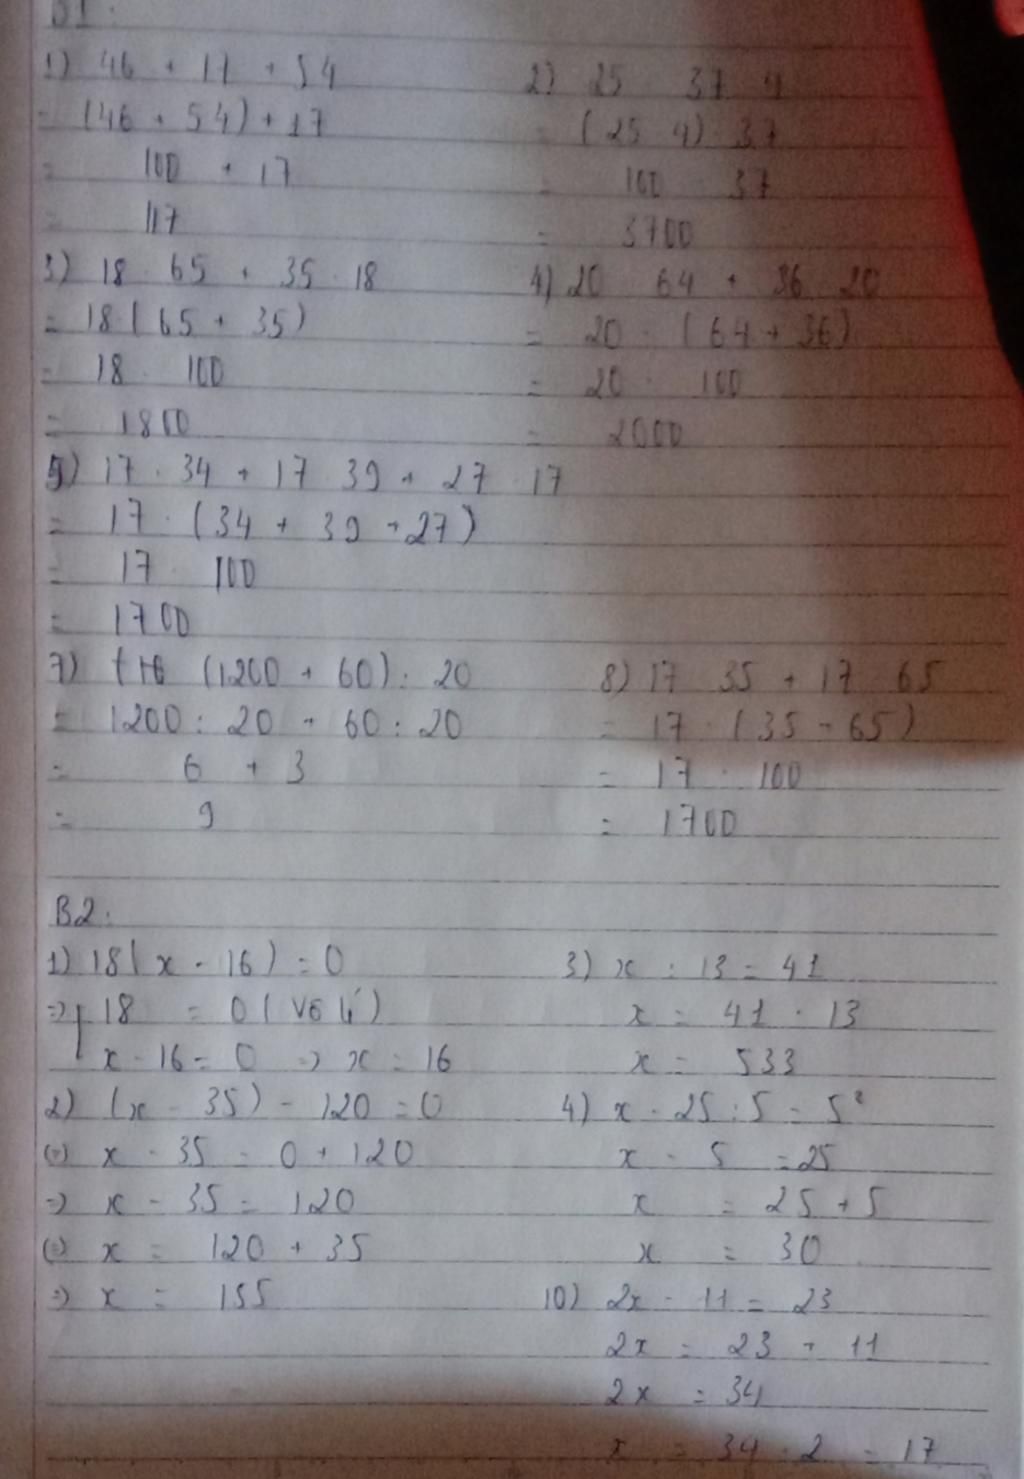 B1:
1) 46 + 17 + 54
= (46 + 54) + 17
= 100 + 17
= 117
2) 25 . 37 . 4
= (25 . 4) . 37
= 100 . 37
= 3700
3) 18 . 65 + 35 . 18
= 18 (65 + 35)
= 18 . 100
= 1800
4) 20 . 64 + 36 . 20
= 20 . (64 + 36)
= 20 . 100
= 2000
5) 17 . 34 + 17 . 39 + 27 . 17
= 17 . (34 + 39 + 27)
= 17 . 100
= 1700
7) (1200 + 60) : 20
= 1200 : 20 + 60 : 20
= 6 + 3
= 9
8) 17 . 35 + 17 . 65
= 17 . (35 + 65)
= 17 . 100
= 1700
B2:
1) 18 (x - 16) = 0
=> [ 18 = 0 (vô lí)
x - 16 = 0 => x = 16
2) (x - 35) - 120 = 0
(=) x - 35 = 0 + 120
=> x - 35 = 120
(=) x = 120 + 35
=> x = 155
3) x : 13 = 41
x = 41 . 13
x = 533
4) x - 25 : 5 = 5²
x - 5 = 25
x = 25 + 5
x = 30
10) 2x - 11 = 23
2x = 23 + 11
2x = 34
x = 34 : 2 = 17